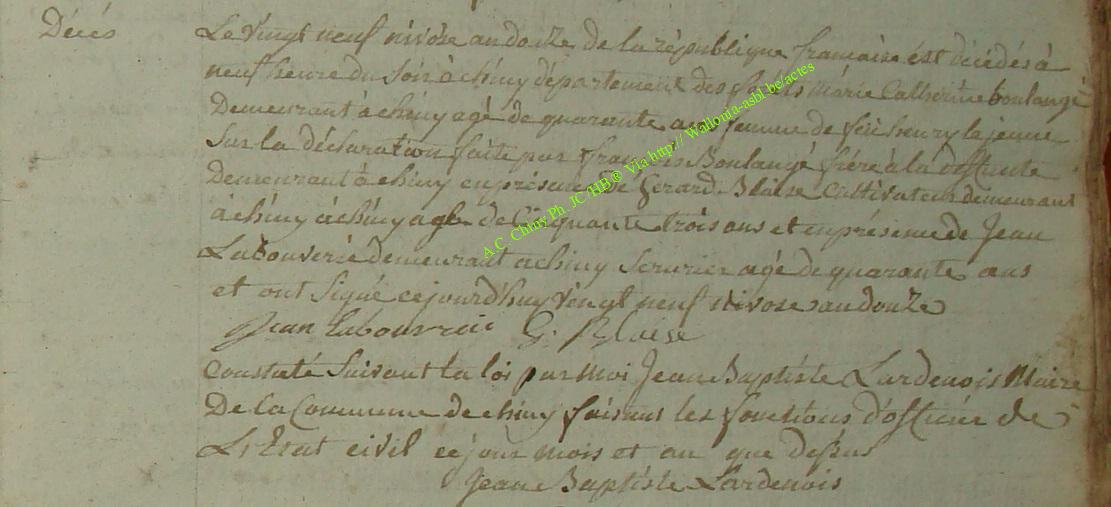 Décés
Le vingt neuf nivôse an douze de la république francaise est décédés à
neuf heure du soir à chiny département des forets marie Catherine boulangé
Demeurant à chiny agé de quarante ans femme de feü henry le jeune
Sur la déclaration faite par françois Boulangé frére à la deffunte
Demeurant à chiny en présence De Gerard Blaise Cultivateur demeurant
à chiny à chiny agé de Cinquante trois ans et en présence de Jean
Labouverie demeurant a chiny Serurier agé de quarante ans
et ont Signé cejourdhuy vingt neuf nivose an douze
Jean Labouverie G. Blaese
Constaté Suivant la loi par moi Jean Baptiste Lardenois Maire
De la Commune de chiny faisant les fonctions d'officier de
L'Etat civil ce jour mois et an que dessus
Jean Baptiste Lardenois
A.C. Chiny Ph. JC HB® Via http// Wallonia-asbl-be/actes